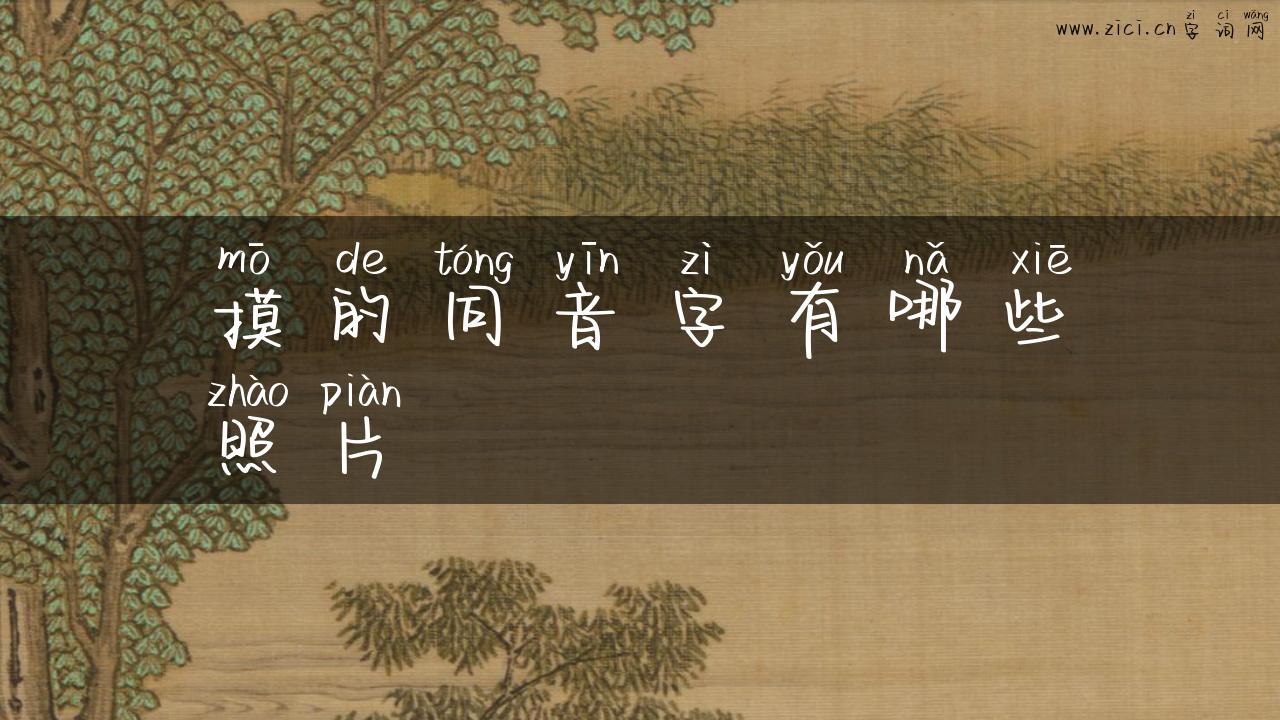 zì cí wǎng
www.zici.cn 字词网
mō de tóng yīn zì yǒu nǎ xiē
摸的同音字有哪些
zhào piàn
照片